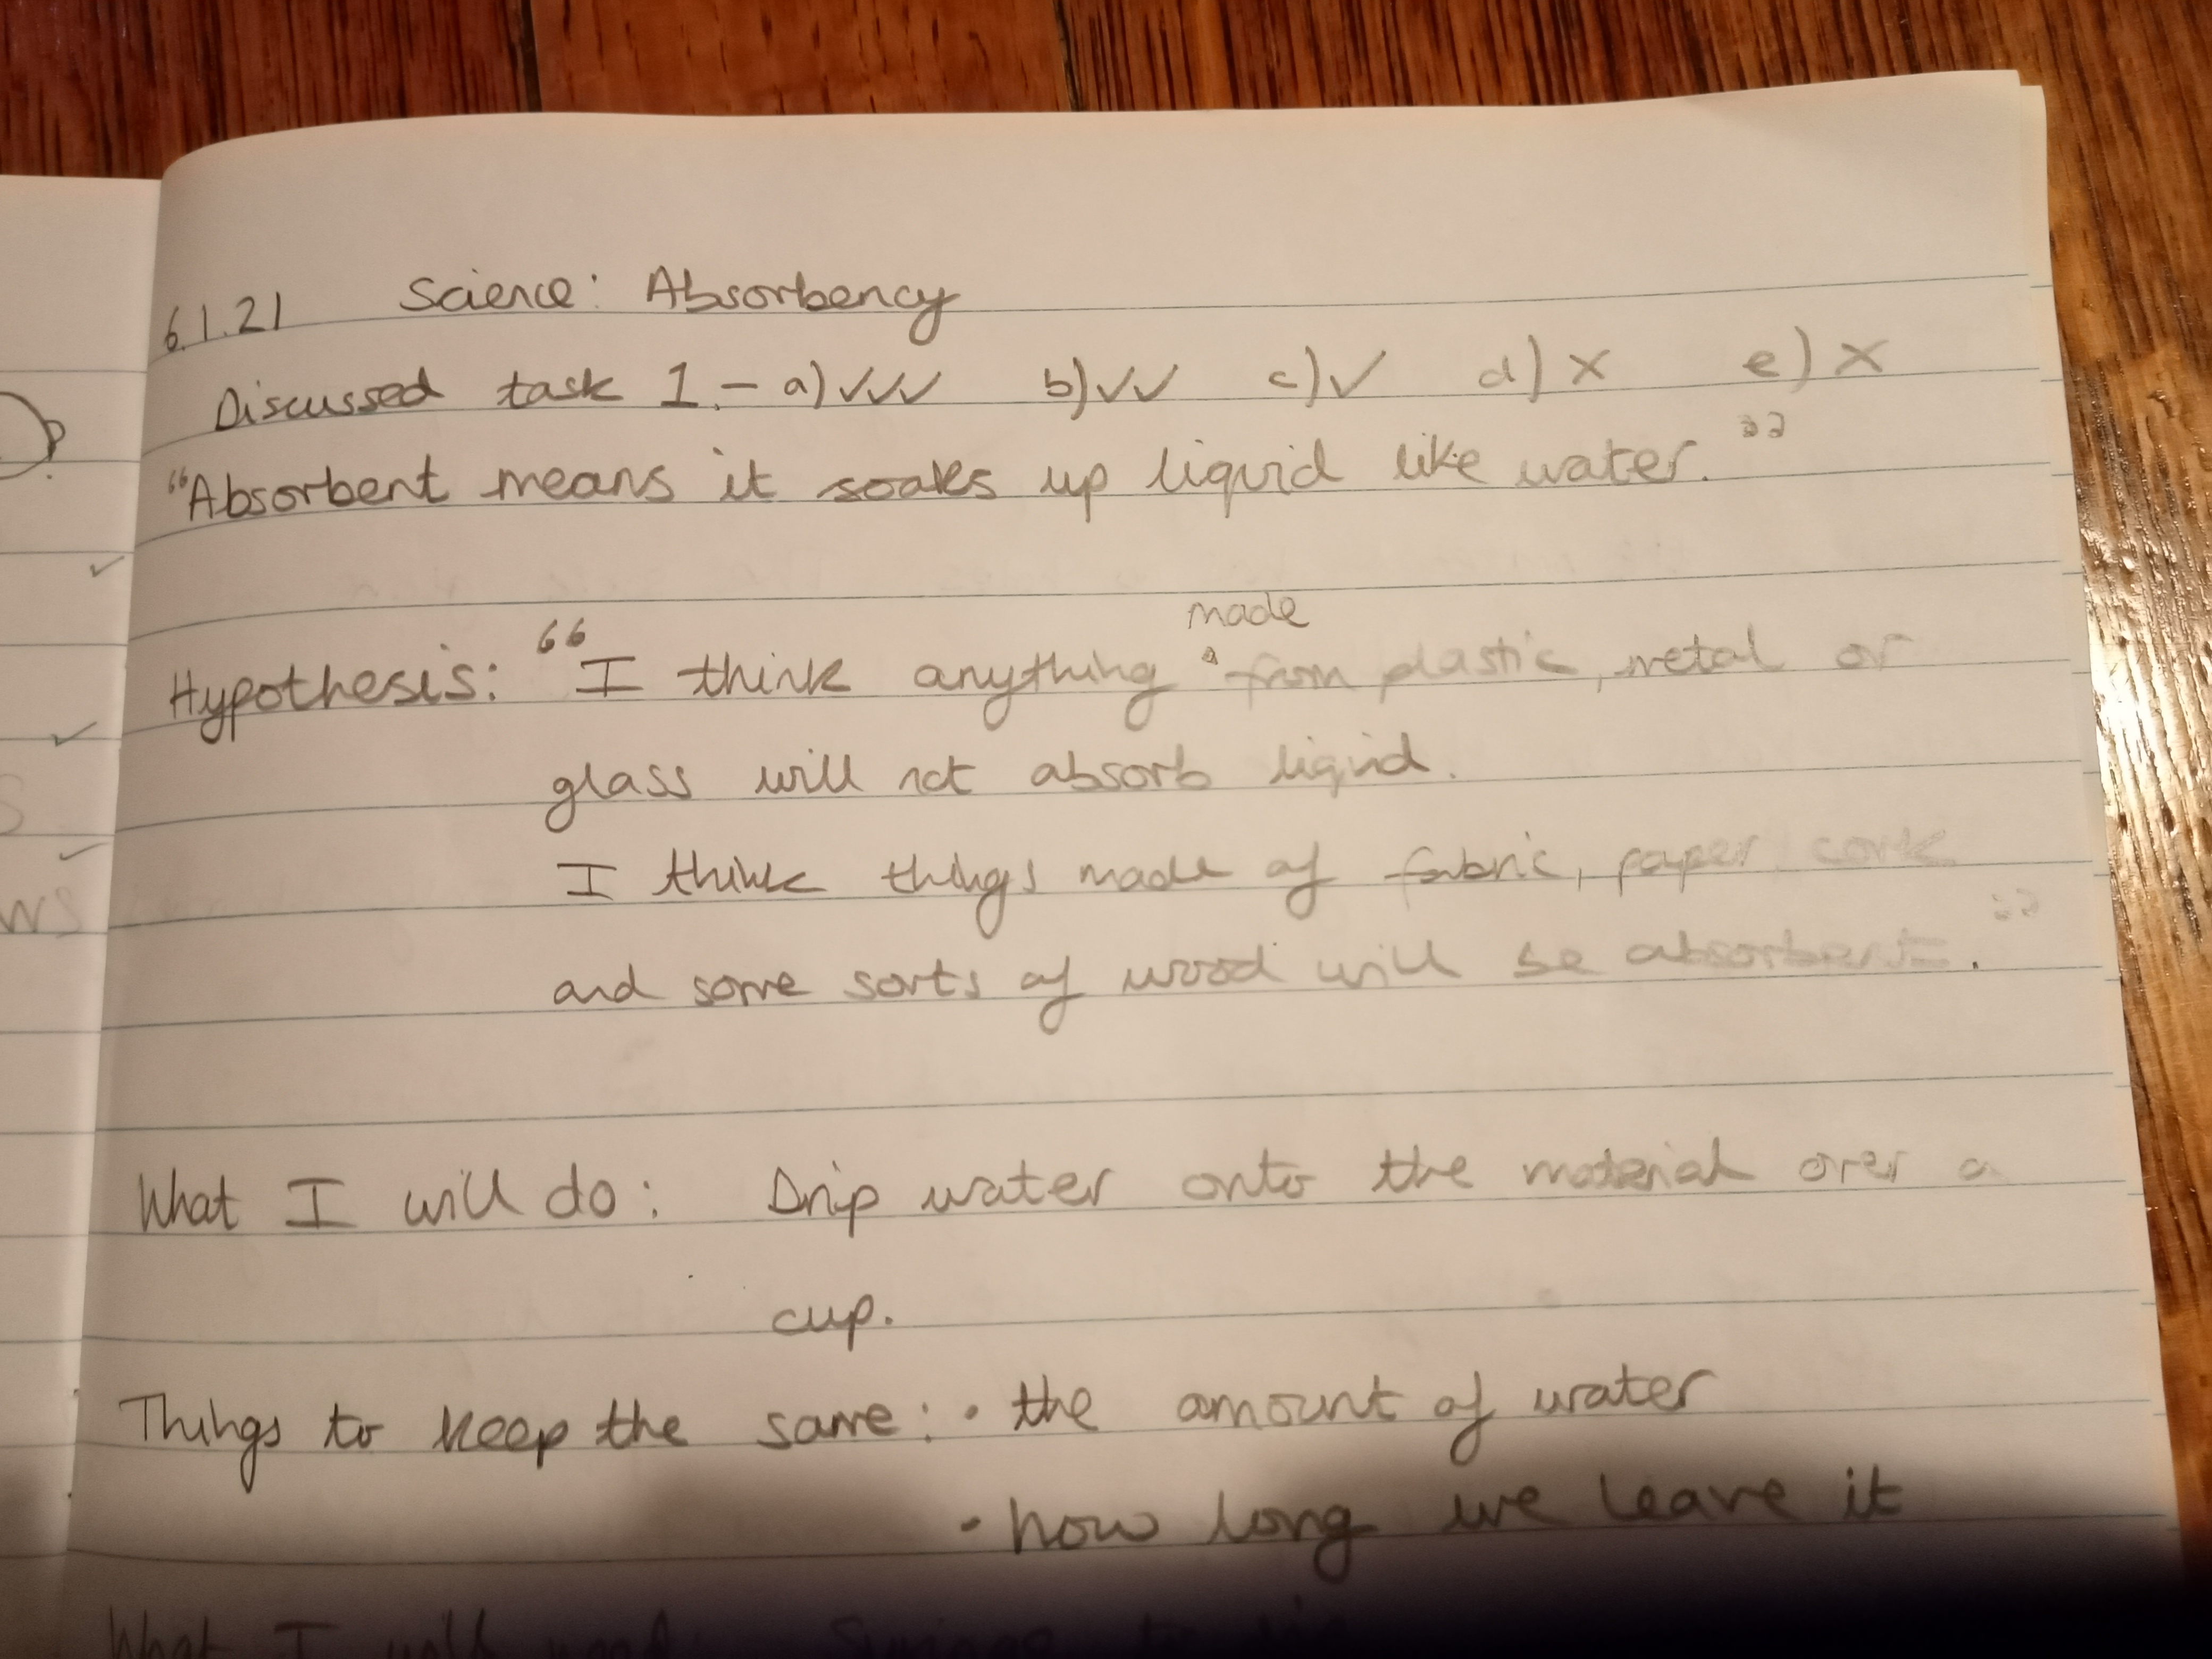 6.1.21 Science: Absorbency
Discussed task 1.- a)✓✓✓ b)✓✓ c)✓ d)X e)X
"Absorbent means it soaks up liquid like water."
made
Hypothesis: "I think anything from plastic, metal or
glass will not absorb liquid.
I think things made of fabric, paper, cork
and some sorts of wood will be absorbent."
What I will do: Drip water onto the material over a
cup.
Things to keep the same: • the amount of water
• how long we leave it
What I will need: Syringe to
WS